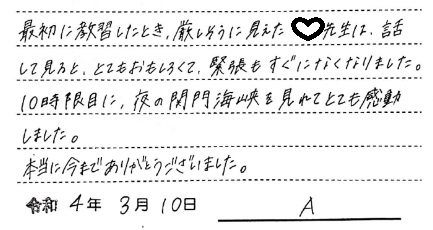 最初に教習したとき、厳しそうに見えた♡先生は、話
して見ると、とてもおもしろくて、緊張もすぐになくなりました。
10時限目に、夜の関門海峡を見れてとても感動
しました。
本当に今までありがとうございました。
令和 4年 3月 10日 A